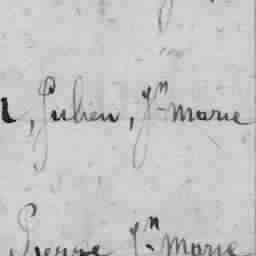 , Julien, Jn marie
Pierre Jn marie